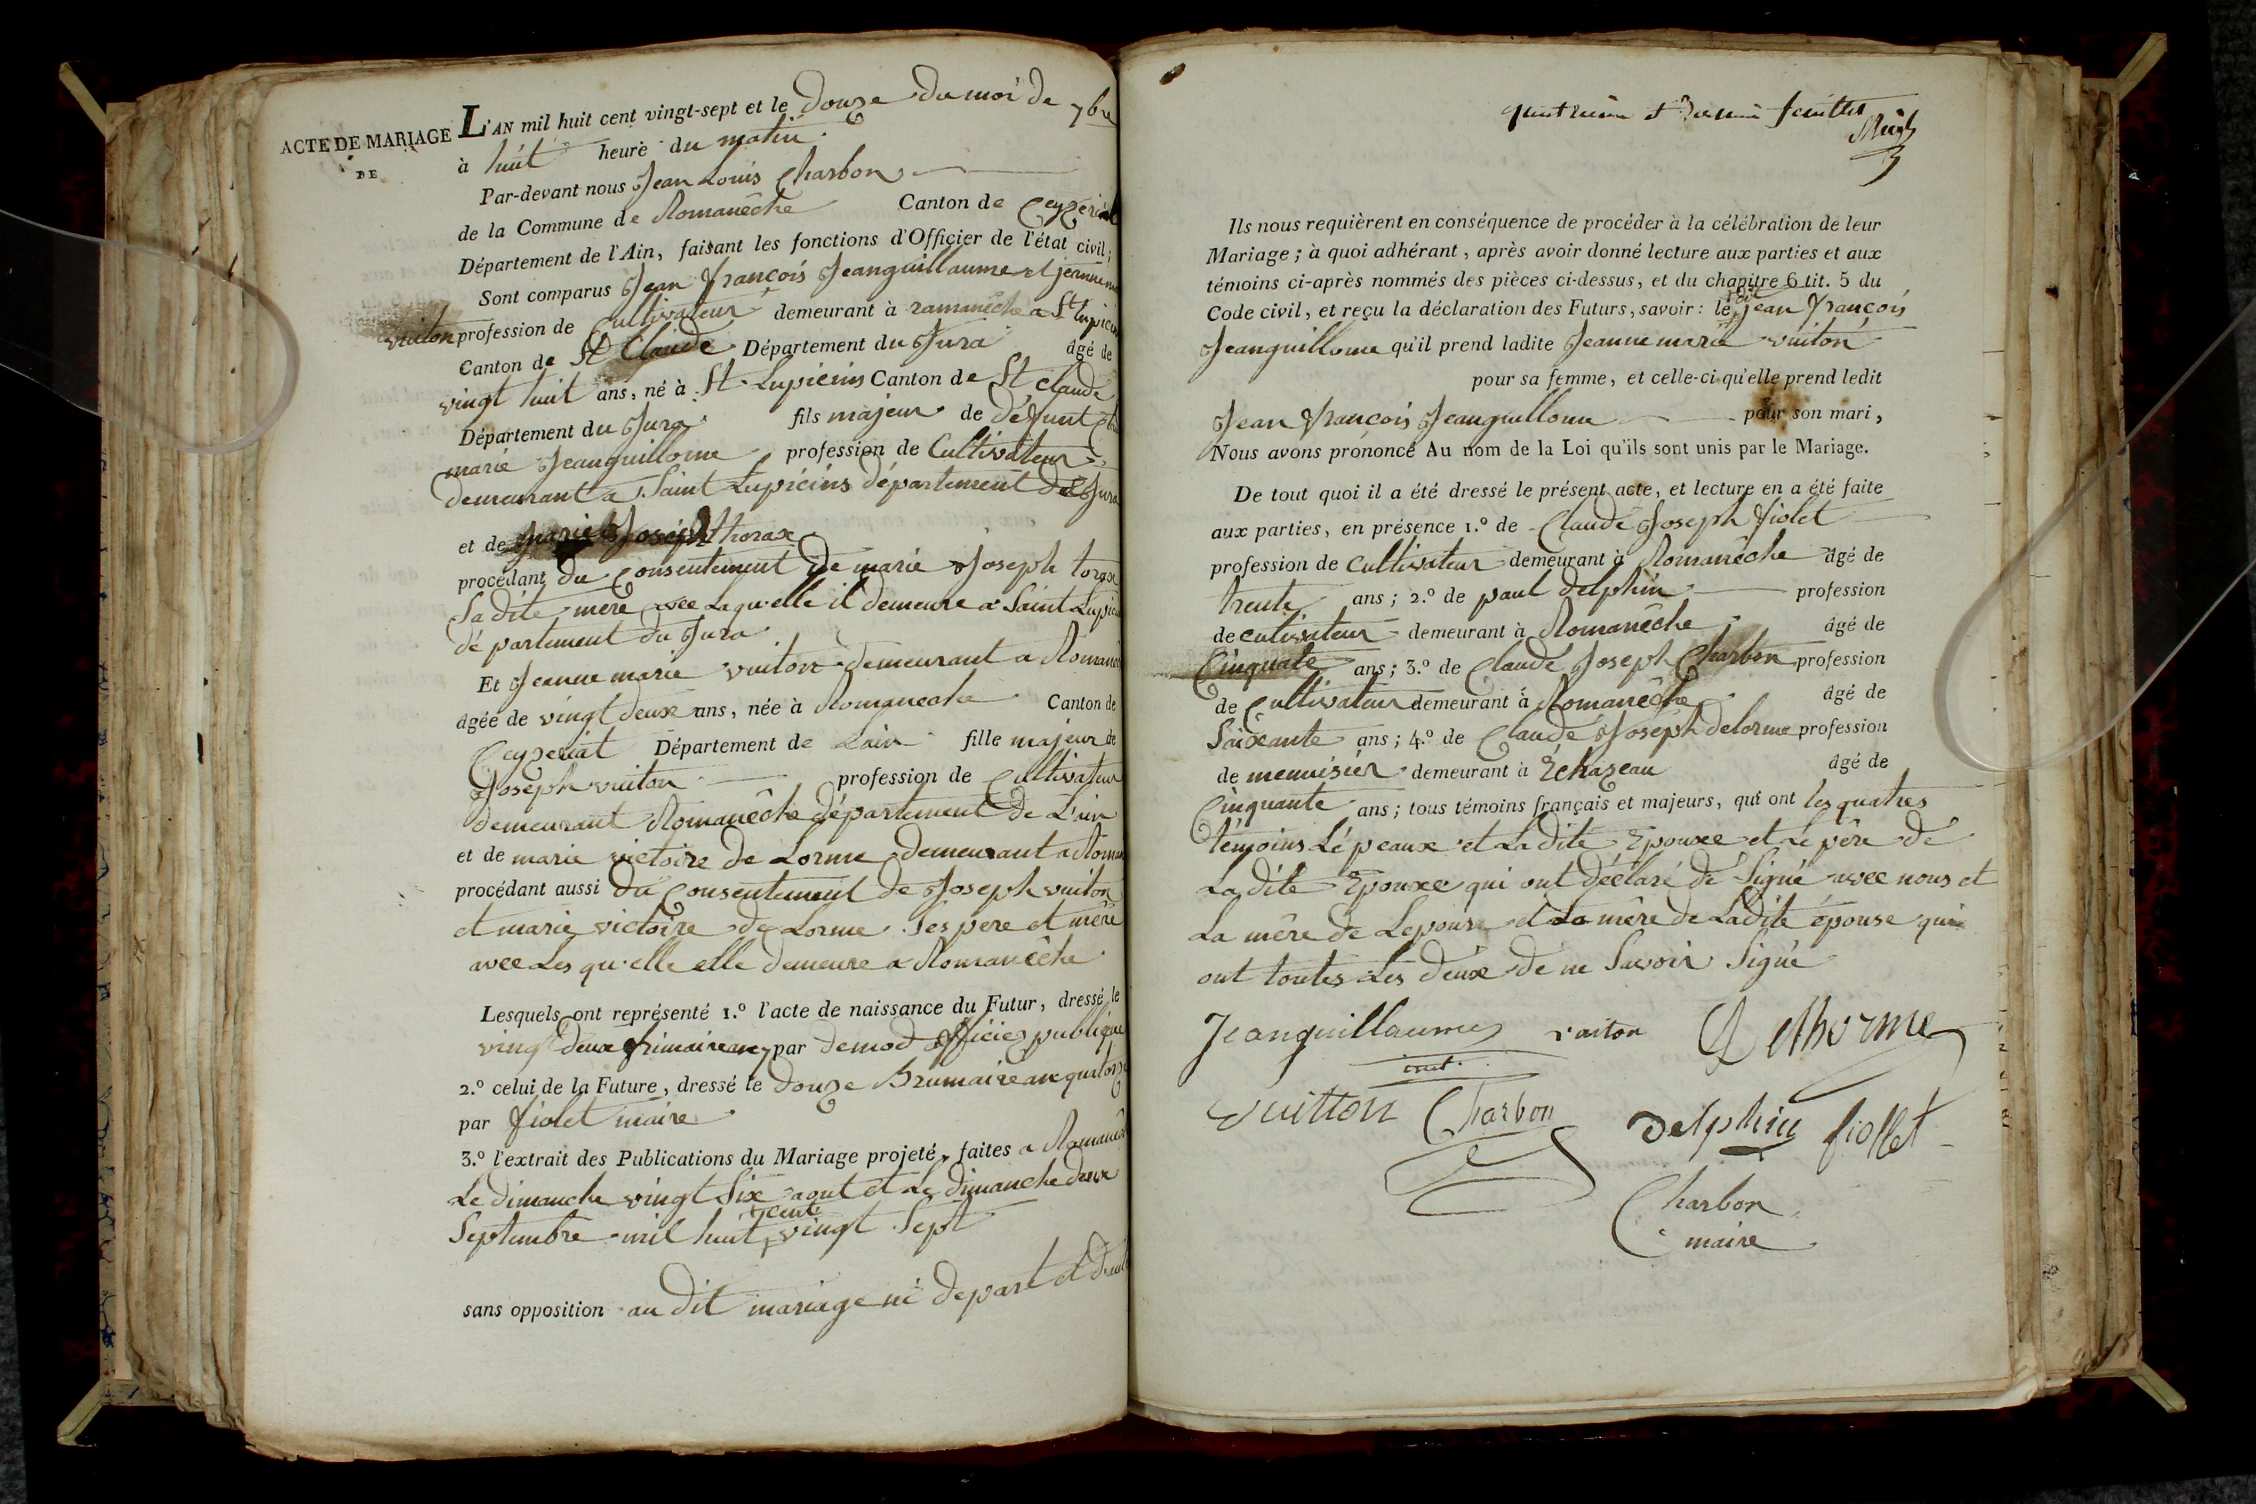 ACTE DE MARIAGE
DE
L'AN mil huit cent vingt-sept et le douze du moi de 7bre
à huit heure du matin
Par-devant nous Jean Louis Charbon
de la Commune de Romanêche Canton de Ceyzeriat
Département de l'Ain, faisant les fonctions d'Officier de l'état civil;
Sont comparus Jean François Jeanguillaume et jeanne
vuiton profession de Cultivateur demeurant à ramanêche a St lupicin
Canton de St Claude Département du Jura âgé de
vingt huit ans, né à St Lupicins Canton de St Claude
Département du Jura fils majeur de défunt
marie Jeanguillome profession de Cultivateur
demeurant a Saint Lupicins département du Jura
et de marie Joseph thorax
procédant du Consentement de marie Joseph torax
Sa dite mere avec laqu'elle il demeure a Saint Lupicin
département du Jura
Et Jeanne marie vuiton demeurant a Romanêche
âgée de vingt deux ans, née à Romaneche Canton de
Ceyzeriat Département de Lain fille majeur de
Joseph vuiton profession de Cultivateur
demeurant Romanêche département de L'ain
et de marie victoire de Lorme demeurant a Roman
procédant aussi du Consentement de Joseph vuiton
et marie victoire de Lorme Ses pere et mère
avec Les qu'elle elle demeure a Romanêche
Lesquels ont représenté 1.º l'acte de naissance du Futur, dressé le
vingt deux frimaire an 7 par demod officier publique
2.º celui de la Future, dressé le douze Brumaire an quatorze
par fiolet maire
3.º l'extrait des Publications du Mariage projeté, faites a Romanê
Le dimanche vingt Six aout et Le dimanche deux
cents
Septembre mil huit vingt Sept
sans opposition au dit mariage ni depart et d'
feuillet
Ils nous requièrent en conséquence de procéder à la célébration de leur
Mariage; à quoi adhérant, après avoir donné lecture aux parties et aux
témoins ci-après nommés des pièces ci-dessus, et du chapitre 6 tit. 5 du
Code civil, et reçu la déclaration des Futurs, savoir: le dit Jean François
Jeanguillome qu'il prend ladite Jeanne marie vuiton
pour sa femme, et celle-ci qu'elle prend ledit
Jean François Jeanguillome pour son mari,
Nous avons prononcé Au nom de la Loi qu'ils sont unis par le Mariage.
De tout quoi il a été dressé le présent acte, et lecture en a été faite
aux parties, en présence 1.º de Claude Joseph fiolet
profession de Cultivateur demeurant à Romanêche âgé de
trente ans; 2.º de paul delphin profession
de cutivateur demeurant à Romanêche âgé de
Cinquate ans; 3.º de Claude Joseph Charbon profession
de Cultivateur demeurant à Romanêche âgé de
Soixante ans; 4.º de Claude Joseph delorme profession
de menuisier demeurant à Echazeau âgé de
Cinquante ans; tous témoins français et majeurs, qui ont les quatres
témoins L'épeaux et La dite Epouxe et Le père de
La dite Epouxe qui ont déclaré de Signé avec nous et
La mère de Lepoux et La mère de Ladite épouse qui
ont toutes Les deux de ne Savoir Signé
Jeanguillaume vuiton Delhorme
Vuitton Charbon Delphin fiollet
Charbon
maire